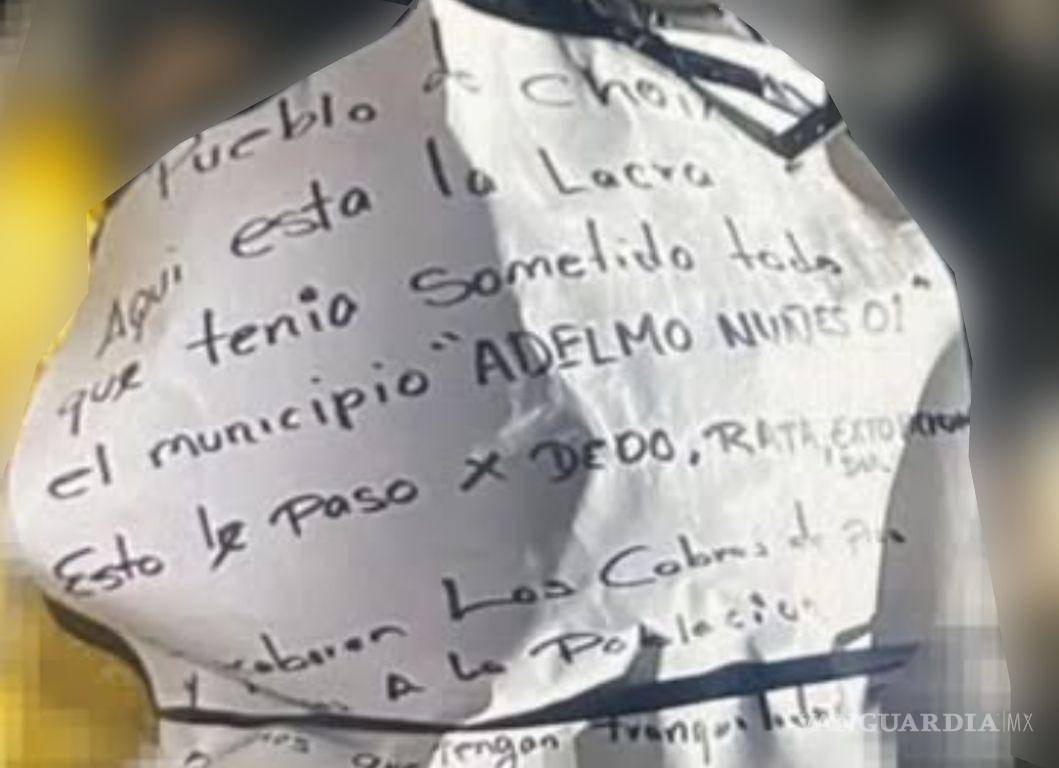 Pueblo de Choix
Aqui esta la Lacra
que tenia sometido todo
el municipio "ADELMO NUÑES 01"
Esto le paso x DEDO, RATA, EXTO
Los Cobros de
A la Poblacion
que tengan tranquilidad
VANGUARDIA|MX